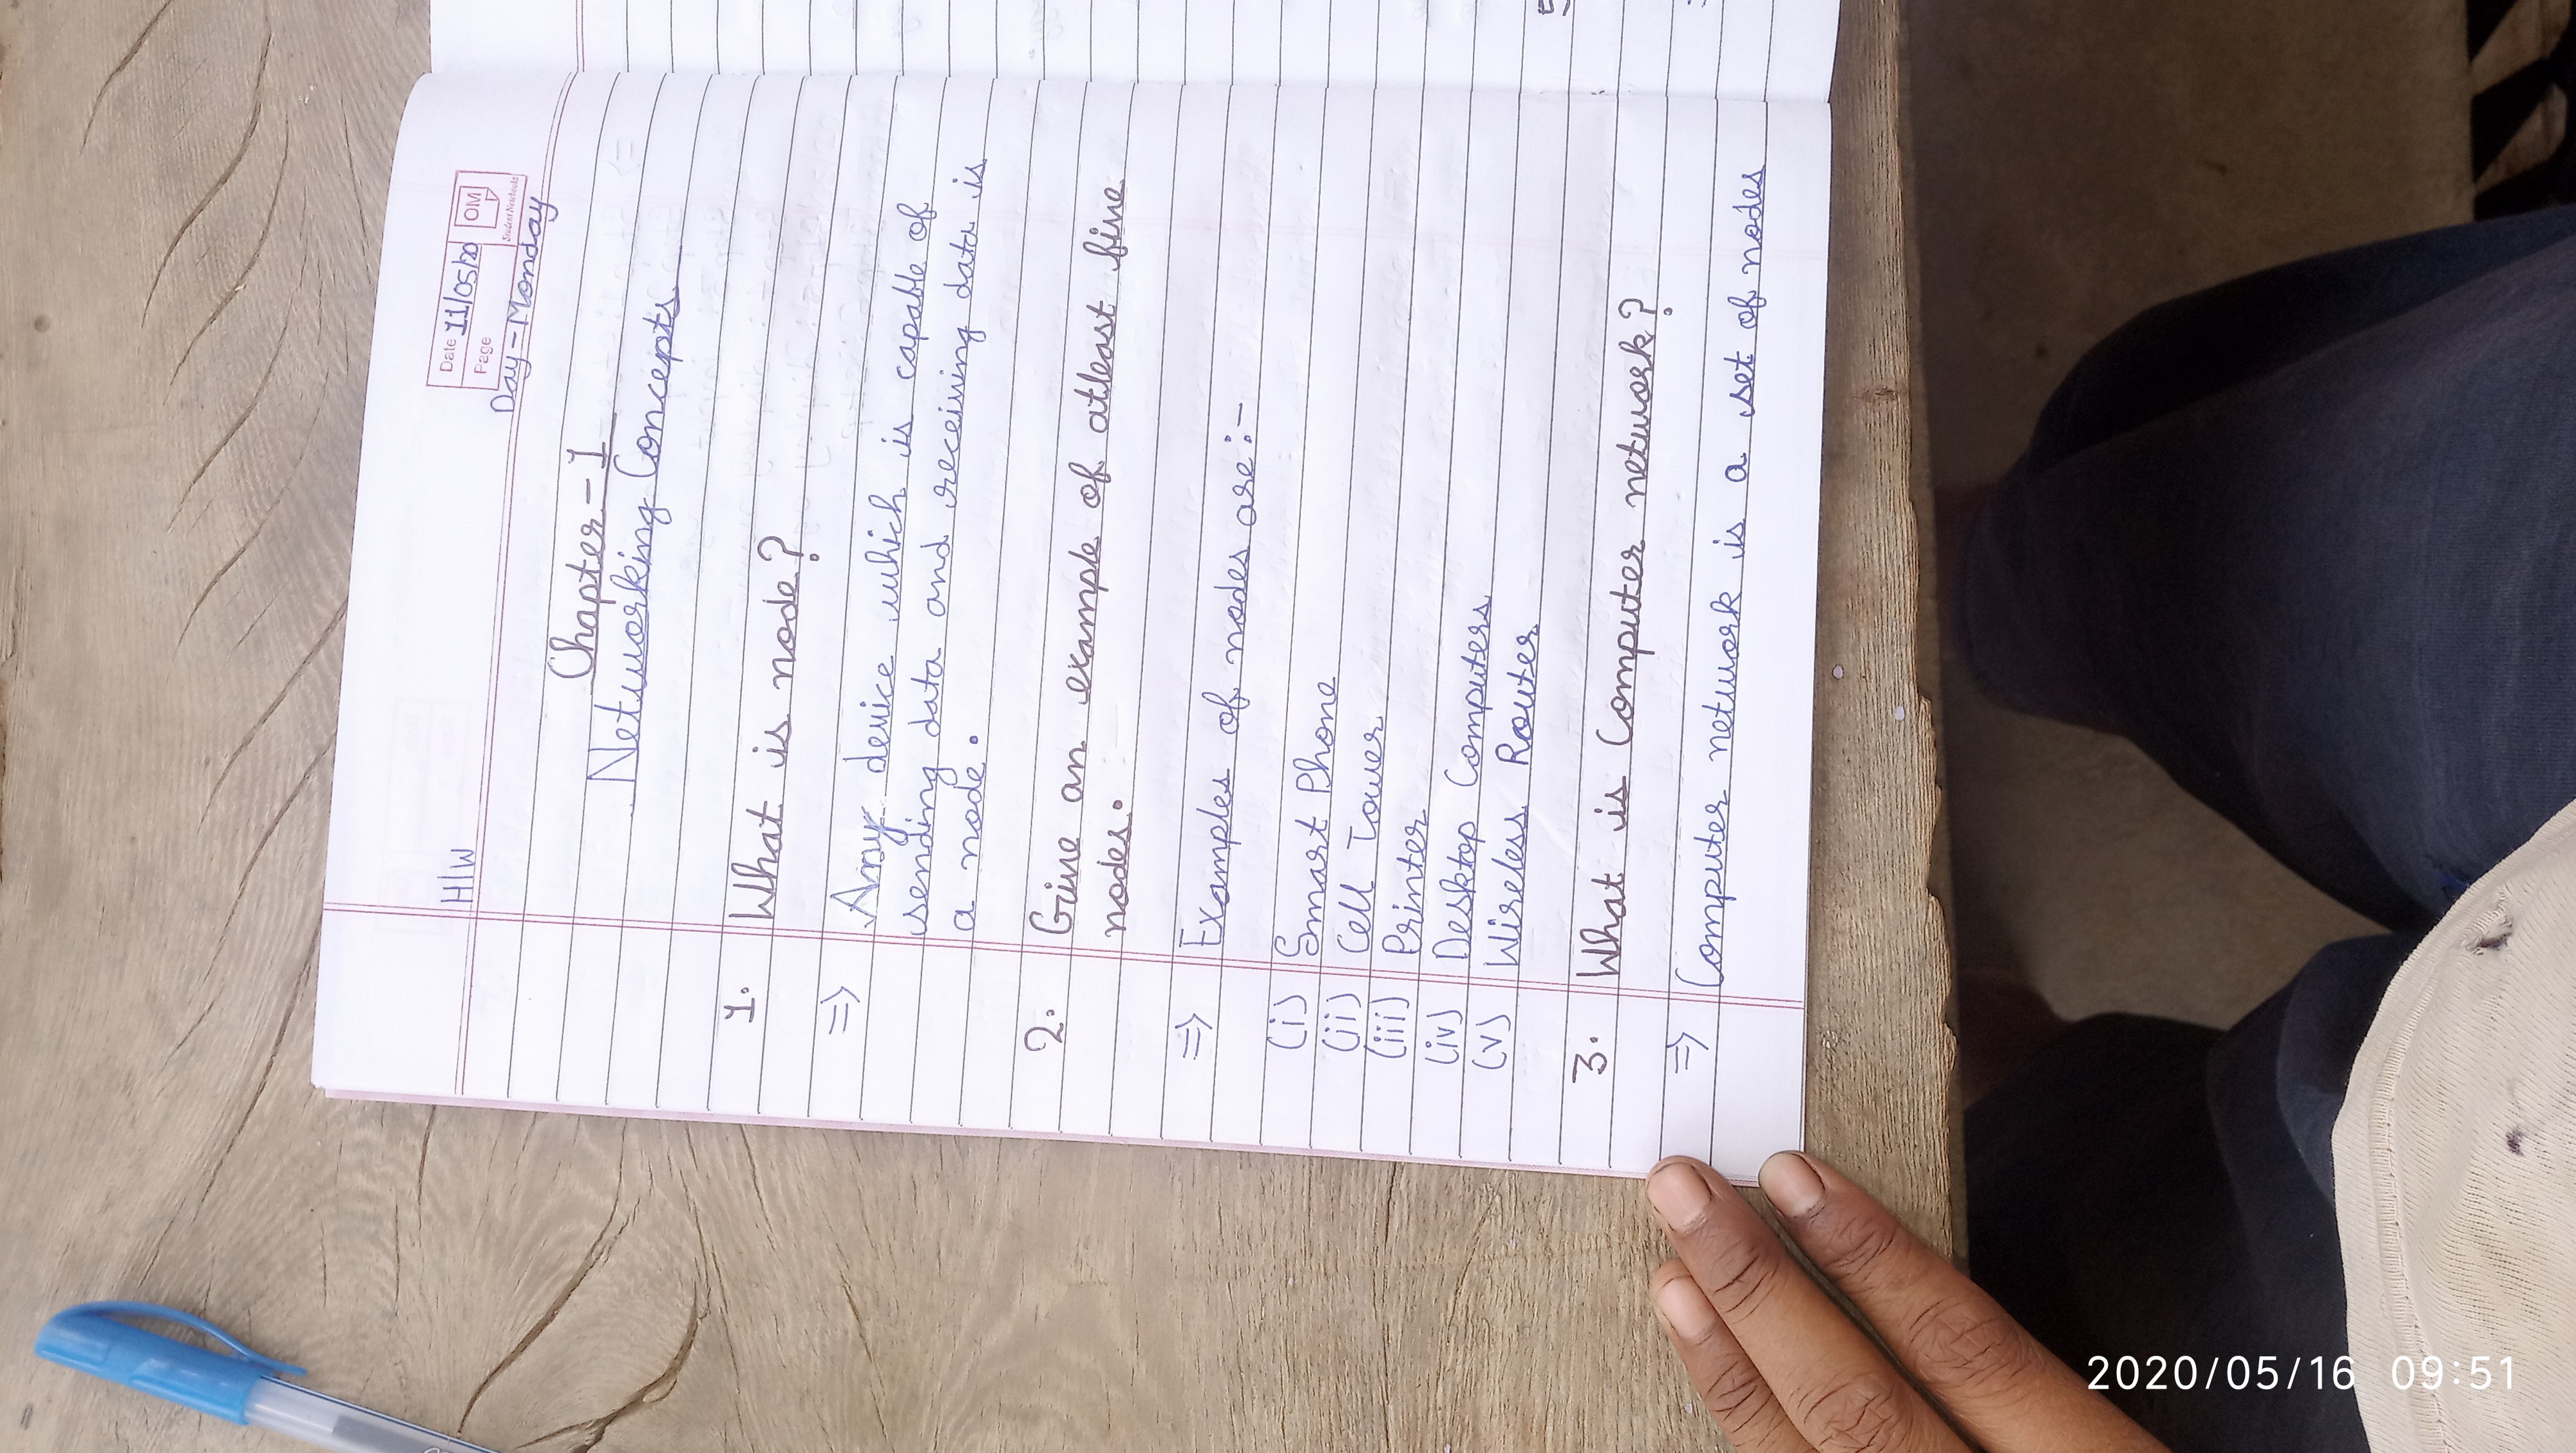 H/W
Date 11/05/20
Page
OM
Student Notebooks
Day - Monday
Chapter - 1
Networking Concepts
1. What is node?
⇒ Any device which is capable of
sending data and receiving data is
a node.
2. Give an example of atleast five
nodes.
⇒ Examples of nodes are:-
(i) Smart Phone
(ii) Cell Tower
(iii) Printer
(iv) Desktop Computers
(v) Wireless Router
3. What is Computer network?
⇒ Computer network is a set of nodes
2020/05/16 09:51